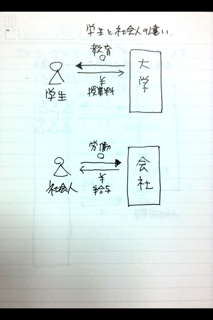 学生と社会人の違い
教育
学生
¥
授業料
大学
労働
社会人
¥
給与
会社